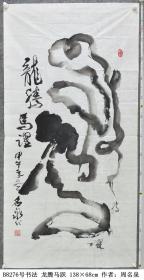 龍騰
馬躍
甲午年
B8276号书法 龙腾马跃 138×68cm 作者：周名泉